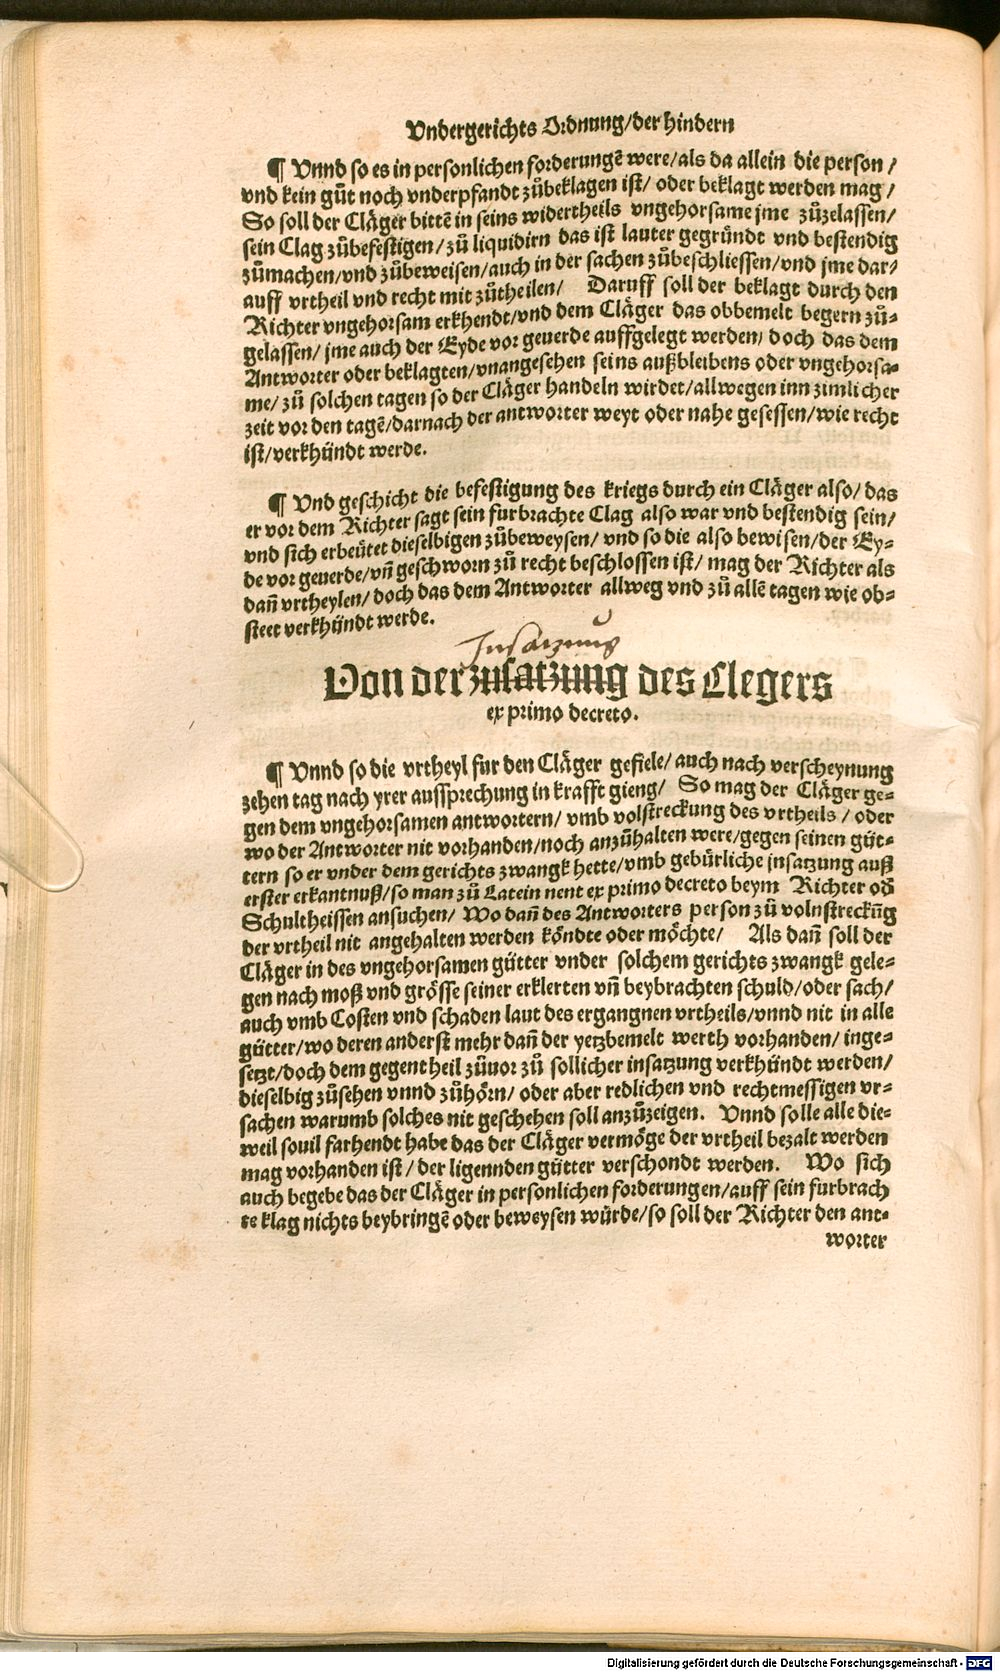 Vndergerichts Ordnung/der hindern
¶ Vnnd so es in personlichen forderungẽ were/als da allein die person /
vnd kein gůt noch vnderpfandt zůbeklagen ist/ oder beklagt werden mag /
So soll der Cläger bittẽ in seins widertheils vngehorsame jme zůzelassen/
sein Clag zůbefestigen/zů liquidirn das ist lauter gegründt vnd bestendig
zůmachen/vnd zůbeweisen/auch in der sachen zůbeschliessen/vnd jme dar-
auff vrtheil vnd recht mit zůtheilen/ Daruff soll der beklagt durch den
Richter vngehorsam erkhendt/vnd dem Cläger das obbemelt begern zů-
gelassen/ jme auch der Eyde vor geuerde auffgelegt werden/ doch das dem
Antworter oder beklagten/vnangesehen seins außbleibens oder vngehorsa-
me/ zů solchen tagen so der Cläger handeln wirdet/allwegen inn zimlicher
zeit vor den tagẽ/darnach der antworter weyt oder nahe gesessen/wie recht
ist/verkhündt werde.
¶ Vnd geschicht die befestigung des kriegs durch ein Cläger also/ das
er vor dem Richter sagt sein furbrachte Clag also war vnd bestendig sein/
vnd sich erbeütet dieselbigen zůbeweysen/ vnd so die also bewisen/der Ey-
de vor geuerde/vñ geschworn zů recht beschlossen ist/ mag der Richter als
dañ vrtheylen/ doch das dem Antworter allweg vnd zů allẽ tagen wie ob-
steet verkhündt werde.
Insatzung
Von der zusatzung des Clegers
ex primo decreto.
¶ Vnnd so die vrtheyl fur den Cläger gefiele/ auch nach verscheynung
zehen tag nach yrer aussprechung in krafft gieng/ So mag der Cläger ge-
gen dem vngehorsamen antwortern/ vmb volstreckung des vrtheils / oder
wo der Antworter nit vorhanden/noch anzůhalten were/gegen seinen güt-
tern so er vnder dem gerichts zwangk hette/vmb gebürliche jnsatzung auß
erster erkantnuß/so man zů Latein nent ex primo decreto beym Richter od̃
Schultheissen ansuchen/ Wo dañ des Antworters person zů volnstreckũg
der vrtheil nit angehalten werden köndte oder möchte/ Als dañ soll der
Cläger in des vngehorsamen gütter vnder solchem gerichts zwangk gele-
gen nach moß vnd grösse seiner erklerten vñ beybrachten schuld/oder sach/
auch vmb Costen vnd schaden laut des ergangnen vrtheils/vnnd nit in alle
gütter/wo deren anderst mehr dañ der yetzbemelt werth vorhanden/ inge-
setzt/doch dem gegentheil zůuor zů sollicher insatzung verkhündt werden/
dieselbig zůsehen vnnd zůhörn/ oder aber redlichen vnd rechtmessigen vr-
sachen warumb solches nit geschehen soll anzůzeigen. Vnnd solle alle die-
weil souil farhendt habe das der Cläger vermöge der vrtheil bezalt werden
mag vorhanden ist/ der ligennden gütter verschondt werden. Wo sich
auch begebe das der Cläger in personlichen forderungen/auff sein furbrach
te klag nichts beybringẽ oder beweysen würde/so soll der Richter den ant-
worter
Digitalisierung gefördert durch die Deutsche Forschungsgemeinschaft - DFG